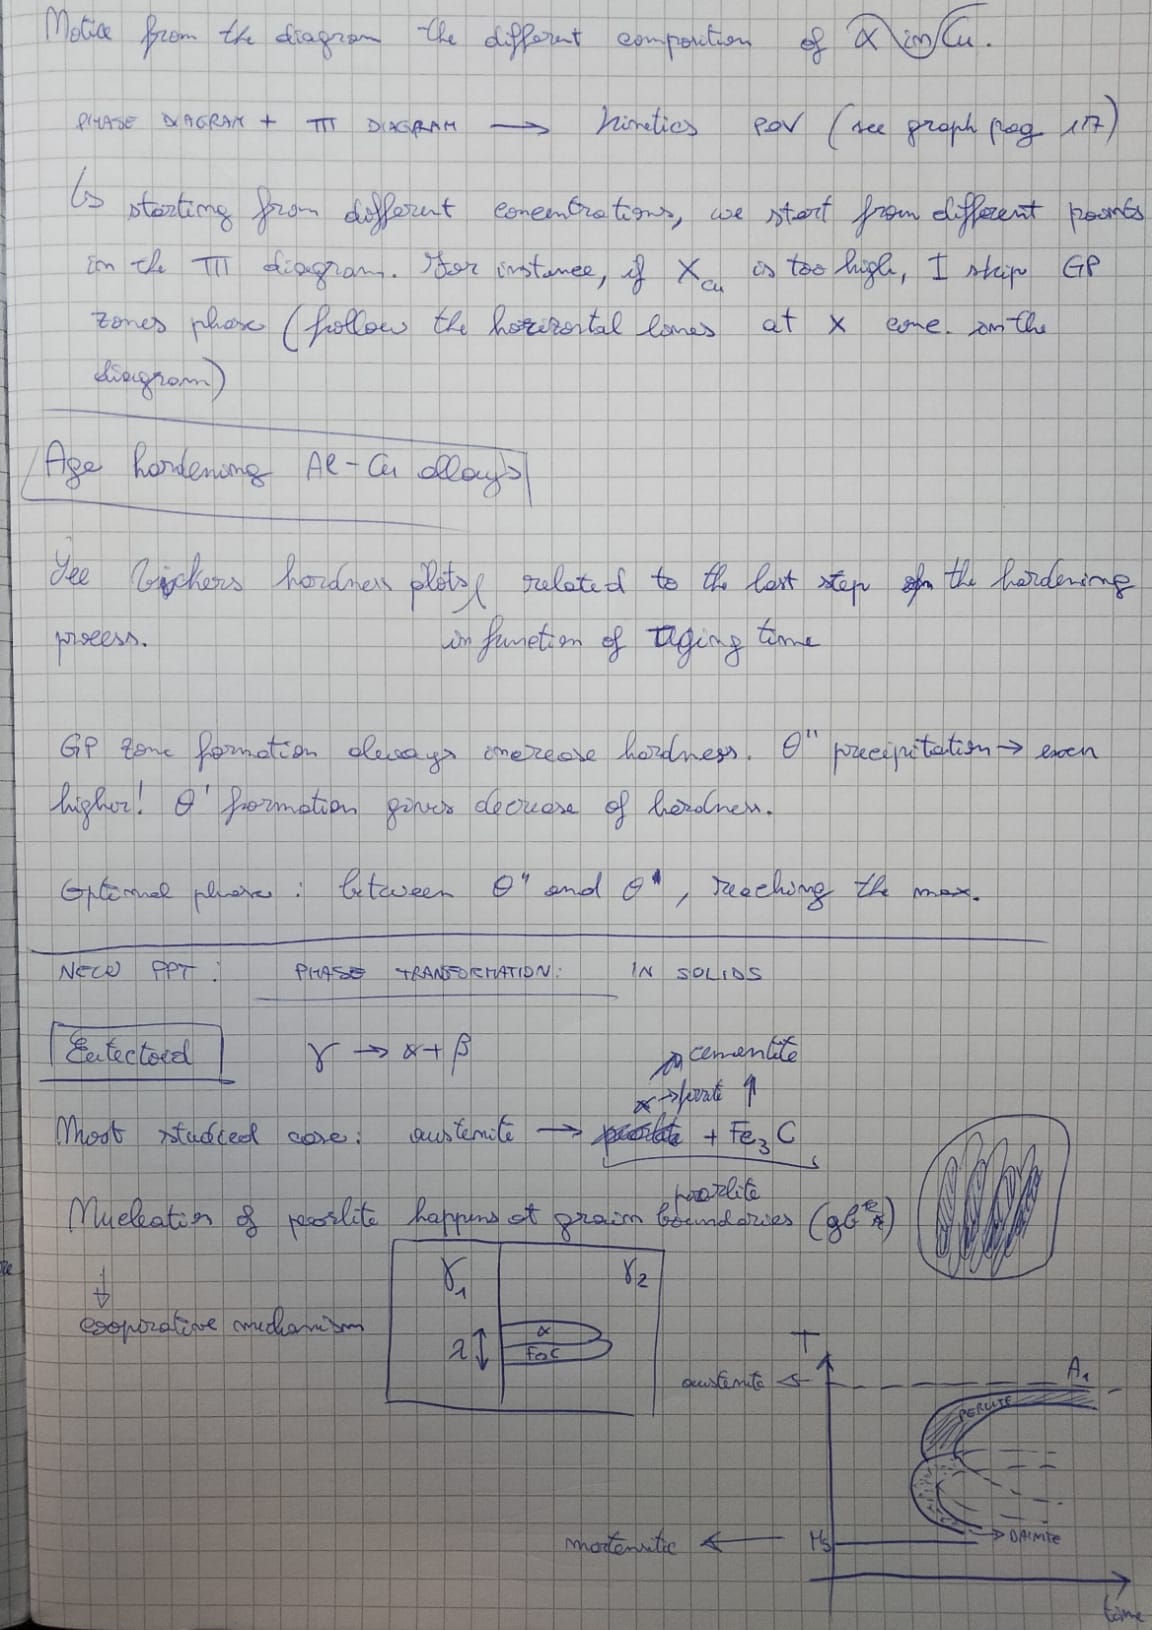 Notice from the diagram the different composition of α in Cu.
PHASE DIAGRAM + TTT DIAGRAM → kinetics POV (see graph pag 117)
↳ starting from different concentrations, we start from different points
in the TTT diagram. For instance, if X_Cu is too high, I skip GP
zones phase (follow the horizontal lines at x conc. on the
diagram)
Age hardening Al-Cu alloys
See Vickers hardness plots, related to the last step of the hardening
process.
in function of aging time
GP zone formation always increase hardness. θ'' precipitation → even
higher! θ' formation gives decrease of hardness.
Optimal phase: between θ'' and θ', reaching the max.
NEW PPT: PHASE TRANSFORMATION: IN SOLIDS
Eutectoid γ → α + β
cementite
α → ferrite ↑
Most studied case: austenite → + Fe₃C
pearlite
Nucleation of pearlite happens at grain boundaries
γ₁ γ₂
↓
cooperative mechanism
λ ↕ α
T
austenite ← A₁
PERLITE
martensitic ← Ms
→ BAINITE
time